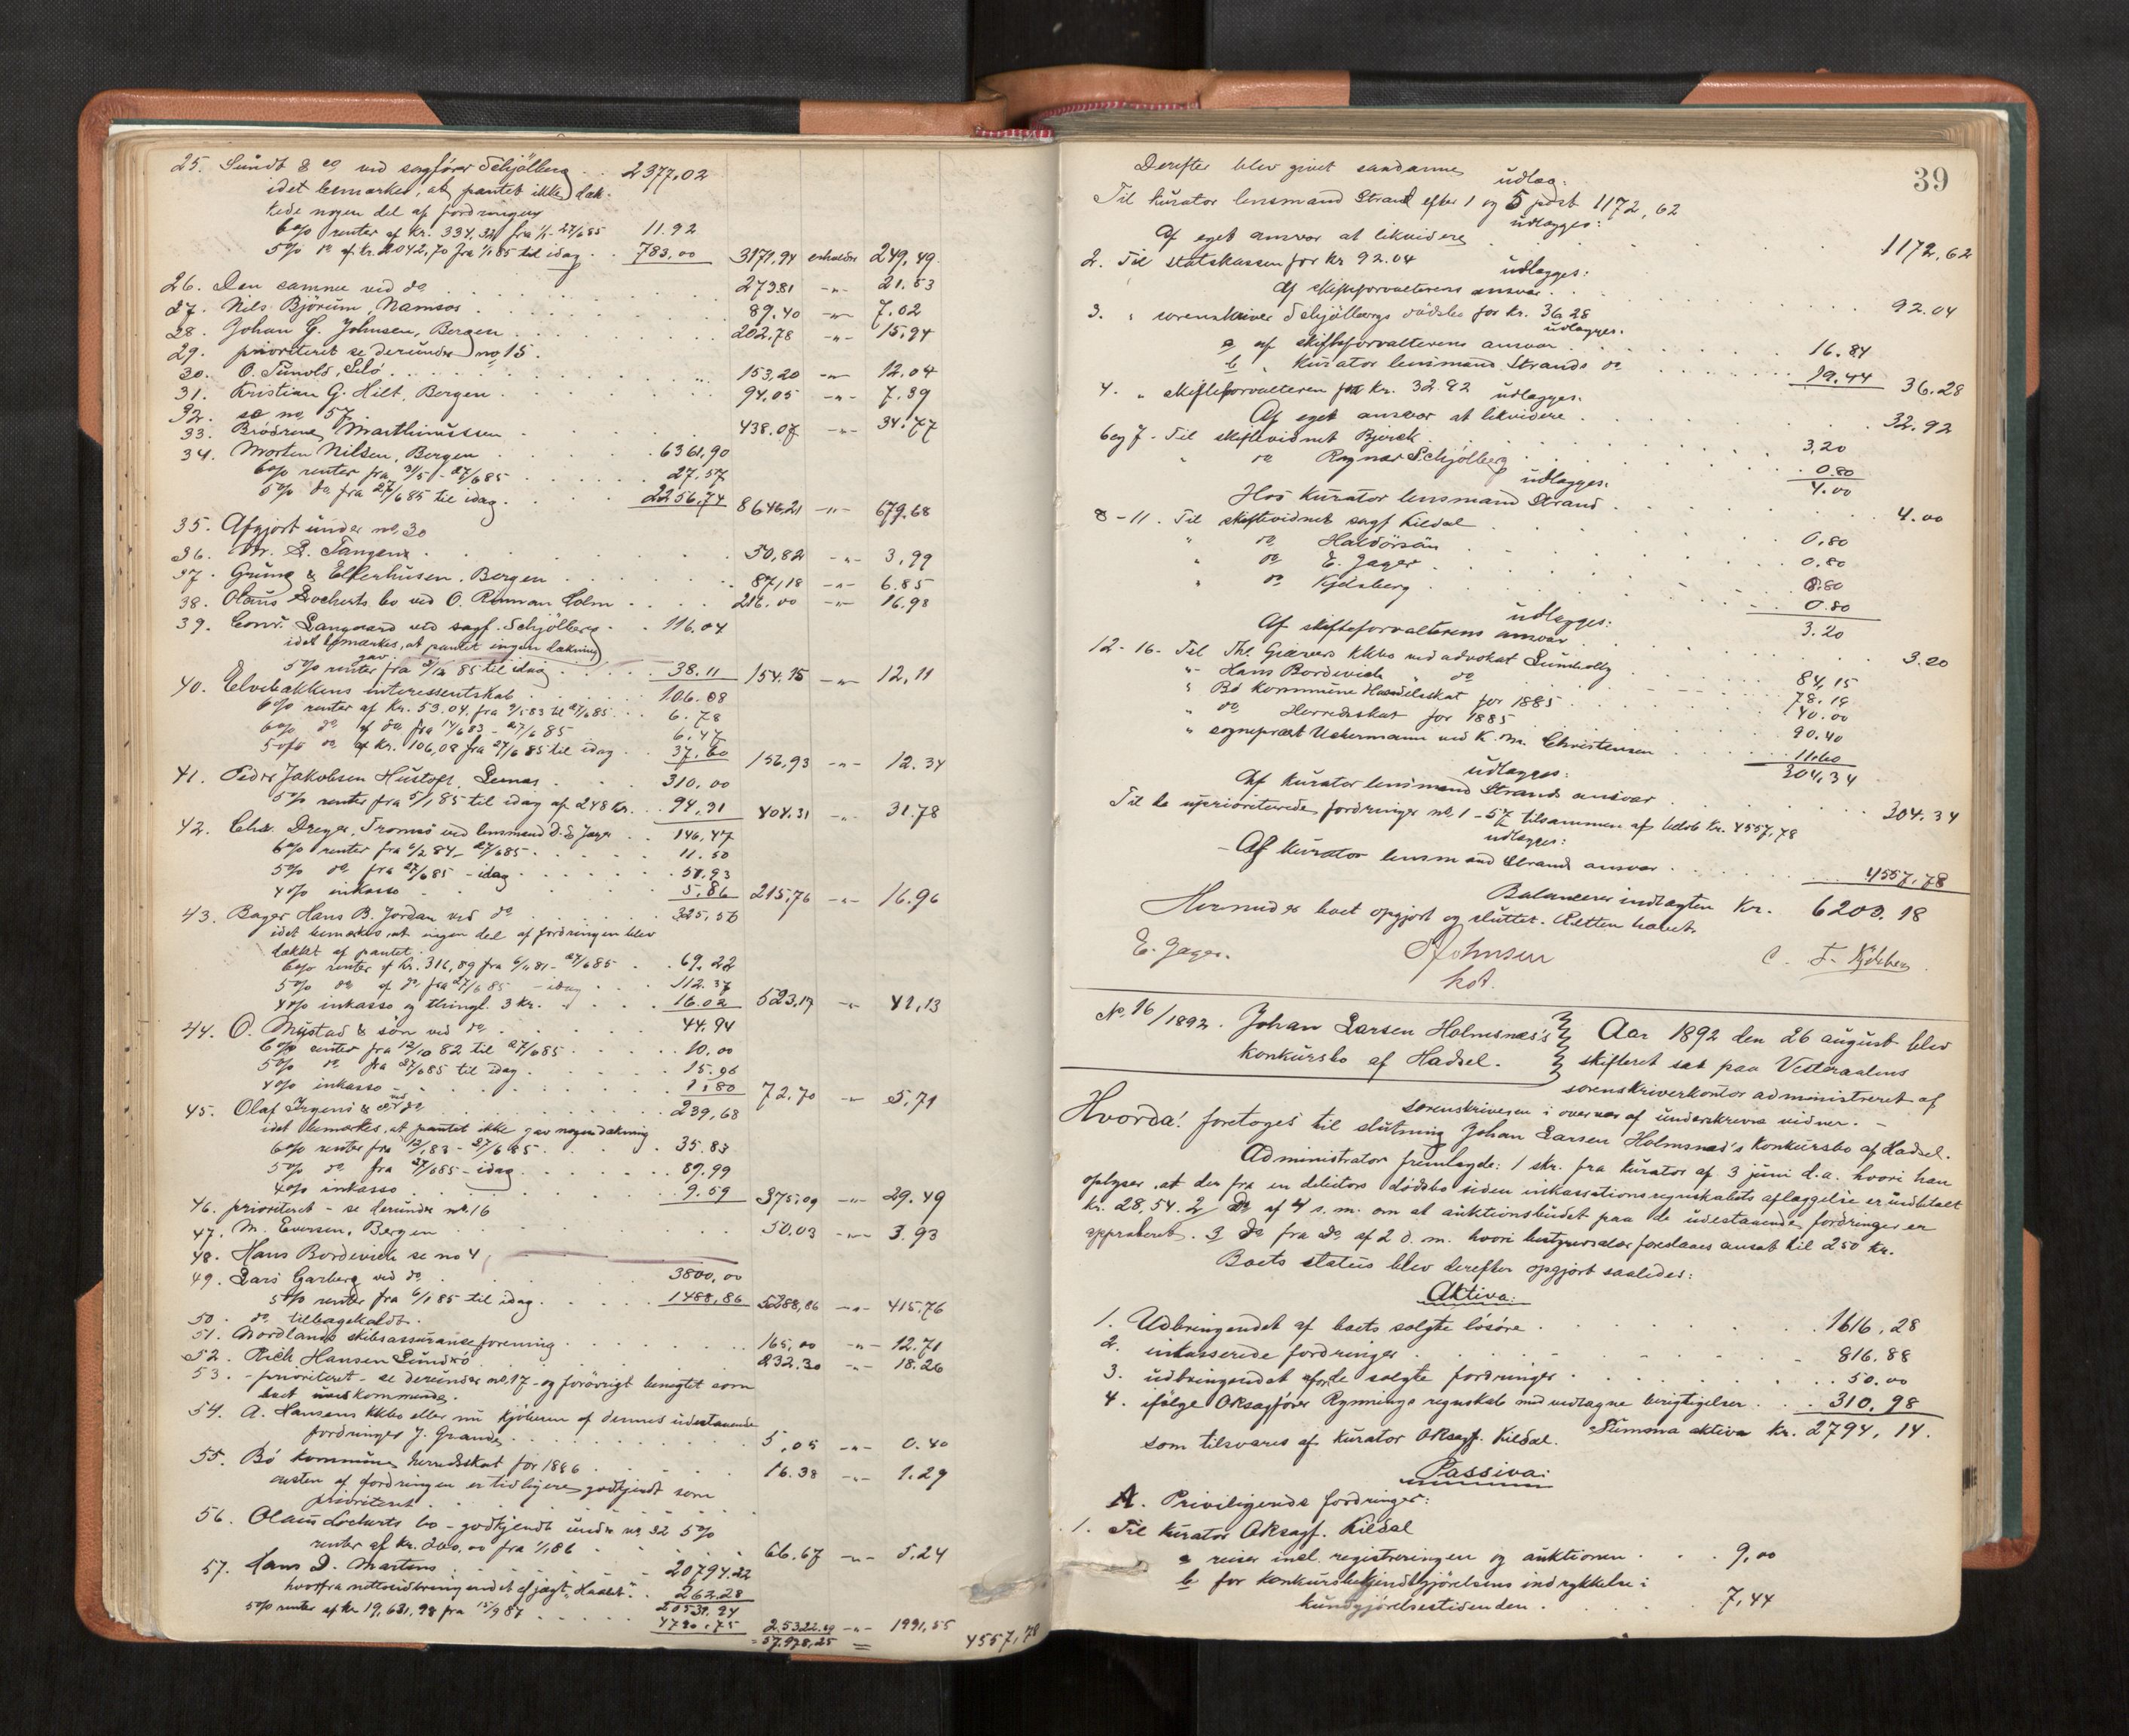 25. Sundt & co ved sagfører Schjölberg . . 2377,02
idet bemærkes, at pantet ikke dæk-
kede nogen del af fordringen
6% renter af kr. 334.32 fra 1/1-27/6 85 11.92
5% do af kr. 2042,70 fra 1/1 85 til idag . . 783,00 3171,94 erholder 249,49.
26. Den samme ved do 273.81 -"- 21.53
27. Nils Björum, Namsos 89.40 -"- 7.02
28. Johan G. Johnsen, Bergen 202,78 -"- 15,94
29. prioriteret se derunder no 15.
30. O. Tunold, Selö 153,20 -"- 12.04
31. Kristian G. Hilt, Bergen 94.05 -"- 7.39
32. se no 57.
33. Brödrene Marthinussen 438.07 -"- 34.77
34. Morten Nilsen, Bergen 6361,90
6% renter fra 31/5 - 27/6 85 27.57
5% do fra 27/6 85 til idag. 2256.74 8646,21 -"- 679.68
35. Afgjort under no 30
36. M. S. Tangens 50,82 -"- 3,99
37. Gruno & Ellerhusen. Bergen 87,18 -"- 6.85
38. Olaus Locherts bo ved O. Rinnan Holm 216.00 -"- 16.98
39. Conr. Langaard ved sagf. Schjölberg 116.04
idet bemærkes, at pantet ingen dækning
gav.
5% renter fra 3/12 85 til idag 38.11 154.15 -"- 12,11
40. Elvebakkens interessentskab 106.08
6% renter af kr. 53.04. fra 9/5 83 til 27/6 85 6.78
6% do af do fra 14/6 83 - 27/6 85 6.47
5% do af kr. 106,08 fra 27/6 85 til idag 37.60 156,93 -"- 12.34
41. Peder Jakobsen Hustoft, Leenes 310,00
5% renter fra 5/1 85 til idag af 248 kr. 94,31 404.31 -"- 31.78
42. Chr. Dreyer, Tromsö ved lensmand D. E Jager 146,47
6% renter fra 6/2 84 - 27/6 85 11.50
5% do fra 27/6 85 - idag 51.93
4% inkasso 5.86 215,76 -"- 16.96
43. Bager Hans B. Jordan ved do 325,56
idet bemerkes, at ingen del af fordringen blev
dækket af pantet.
6% renter af kr. 316,89 fra 6/11 81 - 27/6 85 69.22
5% do af do fra 27/6 85 - idag 112.37
4% inkasso og thingl. 3 kr. 16.02 523,17 -"- 41,13
44. O. Mustad & sön ved do 44.94
6% renter fra 12/10 82 til 27/6 85 10,00
5% do fra 27/6 85 til idag 15.96
4% inkasso 1.80 72.70 -"- 5.71
45. Olaf Irgens & co ved do 239,68
idet bemærkes, at pantet ikke gav nogen dækning
6% renter fra 12/1 83 - 27/6 85 35.83
5% do fra 27/6 85 - idag 89.99
4% inkasso 9.59 375,09 -"- 29.49
46. prioriteret - se derunder no 16
47. M. Eversen, Bergen 50.03 -"- 3.93
48. Hans Bordevich se no 4
49. Lars Garberg ved do 3800,00
5% renter fra 6/1 85 til idag. 1488,86 5288,86 -"- 415.76
50. do tilbagekaldt.
51. Nordlands skibsassuranceforening 165,00 -"- 12.71
52. Rich. Hansen Sundsö 232.30 -"- 18.26
53. - prioriteret - se derunder no 17 - og forövrigt benegtet som
boet uvedkommende.
54. A. Hansens kkbo eller nu kjöberen af dennes udestaaende
fordringer J. Grande 5,05 -"- 0.40
55. Bö kommunes herredsskat for 1886 16.38 -"- 1.29
resten af fordringen er tidligere godkjendt som
prioriteret
56. Olaus Locherts bo - godkjendt under no 32 5%
renter af kr. 200,00 fra 1/1 86 66.67 -"- 5.24
57. Hans D. Martens 20794.22
hvorfra nettoudbringendet af jægt "Haabet" 262.28
20531.94
5% renter af kr 19,631,98 fra 15/9 87 4790.75 25322.69 -"- 1991,55
57.978,25 = 4557,78
39
Derefter blev givet saadanne
udlæg:
Til kurator lensmand Strand efter 1 og 5 post 1172,62
udlægges:
Af eget ansvar at likvidere 1172,62
2. Til statskassen for kr 92.04
udlægges:
Af skifteforvalterens ansvar 92.04
3. " sorenskriver Schjölbergs dödsbo for kr. 36.28
udlægges.
a af skifteforvalterens ansvar 16.84
b " kurator lensmand Strands do 19.44 36.28
4. " skifteforvalteren for kr. 32.92
udlægges.
Af eget ansvar at likvidere 32.92
6 og 7. Til skiftevidnet Bjerck 3,20
" do Ragnar Schjölberg 0.80
udlægges. 4.00
Hos kurator lensmand Strand 4.00
8 - 11. Til skiftevidnet sagf Kildal 0,80
" do Haldörsen 0.80
" do E. Jager 0.80
" do Kjelsberg 0.80
udlægges: 3.20
Af skifteforvalterens ansvar 3.20
12 - 16. Til Thl. Giævers kkbo ved advokat Lumholtz 84,15
" Hans Bordevich " do 78.19
" Bö kommune Handelsskat for 1885 40.00
" do Herredsskat for 1885 90.40
" sognepræst Uckermann ved K. M. Christensen 11.60
udlægges: 304,34
Af kurator lensmand Strands ansvar 304.34
Til de uprioriterede fordringer no 1 - 57 tilsammen af beløb kr. 4557,78
udlægges:
- Af kurator lensmand Strands ansvar 4557.78
Balancerer indtægten kr. 6203.18
Hermed er boet opgjort og sluttet. Retten hævet.
E. Jager. Johnsen C. F. Kjelsberg
kst.
No 16/1892. Johan Larsen Holmsnæs's Aar 1892 den 26 august blev
konkursbo af Hadsel. skifteret sat paa Vesteraalens
sorenskriverkontor administreret af
sorenskriveren i overvær af underskrevne vidner. -
Hvorda! foretoges til slutning Johan Larsen Holmsnæs's konkursbo af Hadsel.
Administrator fremlagde: 1 skr. fra kurator af 3 juni d.a. hvori han
oplyser, at der fra en debitors dødsbo siden inkassationsregnskabets aflæggelse er indbetalt
kr. 28,54. 2 do af 4 s.m. om at auktionsbudet paa de udestaaende fordringer er
approberet. 3 do fra do af 2 d.m. hvori bestyrersalær foreslaaes ansat til 250 kr.
Boets status blev derefter opgjort saaledes:
Aktiva:
1. Udbringendet af boets solgte lösöre 1616,28
2. inkasserede fordringer 816.88
3. udbringendet af de solgte fordringer 50.00
4. ifølge Oksagfører Rynnings regnskab med vedtagne berigtigelser 310,98
Summa aktiva kr. 2794,14.
som tilsvares af kurator Oksagf. Kildal.
Passiva:
A. Priviligerede fordringer:
1. Til kurator Oksagf. Kildal
a reiser incl. registreringen og auktionen 9,00
b for konkursbekjendtgjörelsens indrykkelse i
kundgjörelsestidenden 7,44